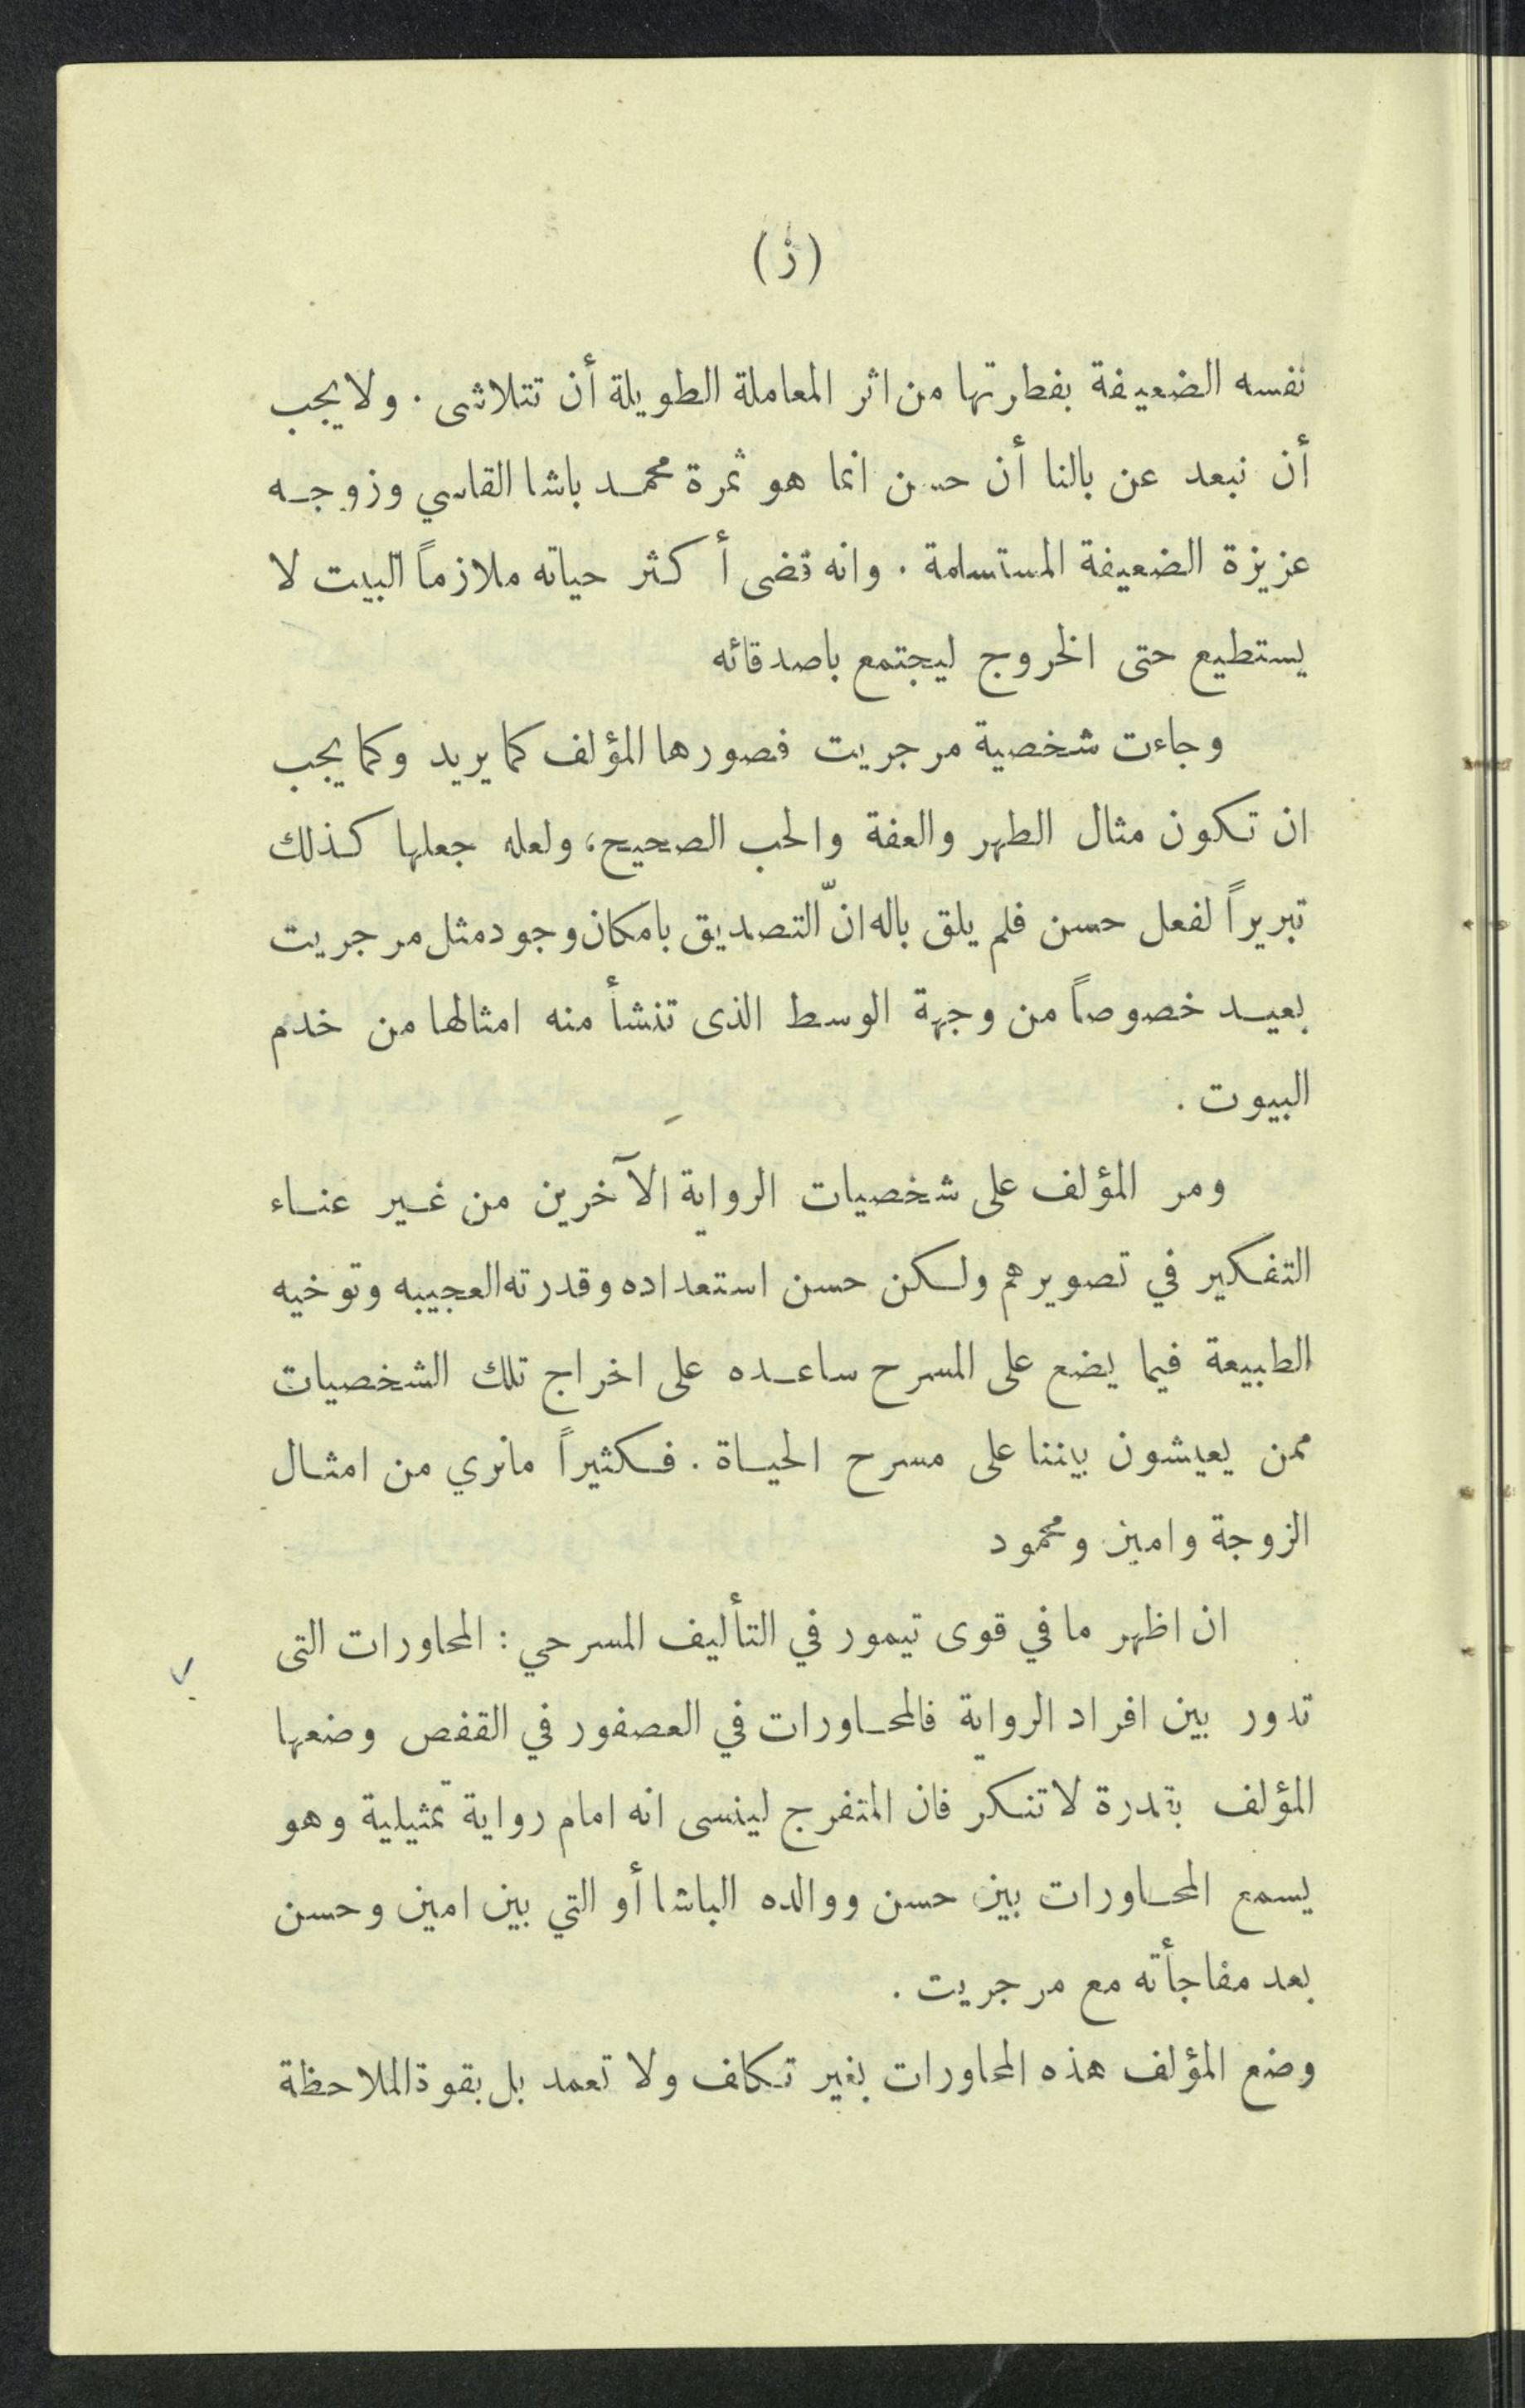 (ز)
نفسه الضعيفة بفطرتها من اثر المعاملة الطويلة أن تتلاشى . ولا يجب
أن نبعد عن بالنا أن حسن انما هو ثمرة محمد باشا القاسي وزوجه
عزيزة الضعيفة المستسلمة . وانه قضى أكثر حياته ملازماً البيت لا
يستطيع حتى الخروج ليجتمع باصدقائه
وجاءت شخصية مرجريت فصورها المؤلف كما يريد وكما يجب
ان تكون مثال الطهر والعفة والحب الصحيح، ولعله جعلها كذلك
تبريراً لفعل حسن فلم يلق باله انّ التصديق بامكان وجود مثل مرجريت
بعيد خصوصاً من وجهة الوسط الذى تنشأ منه امثالها من خدم
البيوت .
ومر المؤلف على شخصيات الرواية الآخرين من غير عناء
التفكير في تصويرهم ولكن حسن استعداده وقدرته العجيبه وتوخيه
الطبيعة فيما يضع على المسرح ساعده على اخراج تلك الشخصيات
ممن يعيشون بيننا على مسرح الحياة . فكثيراً مانري من امثال
الزوجة وامين ومحمود
ان اظهر ما في قوى تيمور في التأليف المسرحي : المحاورات التى
تدور بين افراد الرواية فالمحاورات في العصفور في القفص وضعها
المؤلف بقدرة لا تنكر فان المتفرج لينسى انه امام رواية تمثيلية وهو
يسمع المحاورات بين حسن ووالده الباشا أو التي بين امين وحسن
بعد مفاجأته مع مرجريت .
وضع المؤلف هذه المحاورات بغير تكلف ولا تعمد بل بقوة الملاحظة